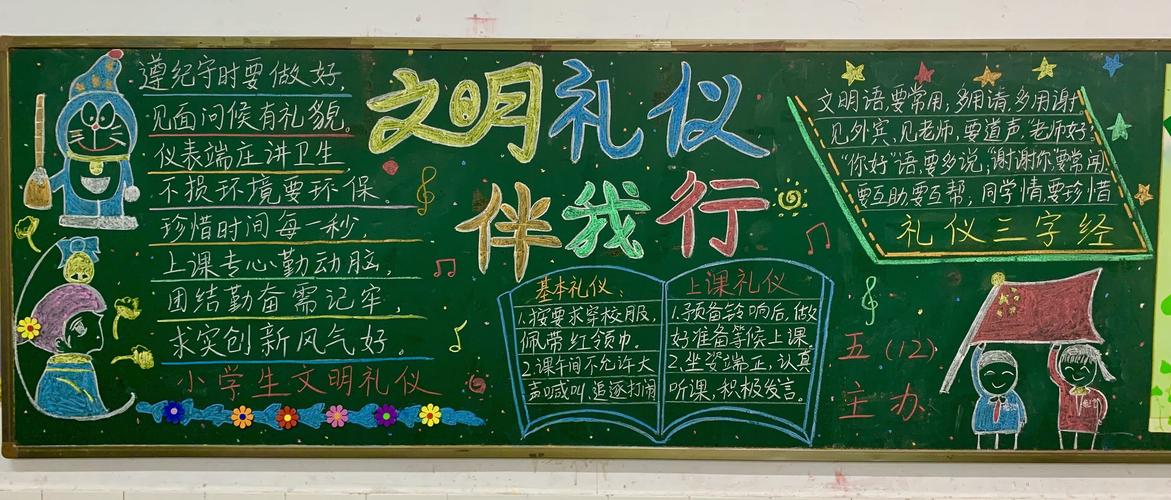 遵纪守时要做好,
见面问候有礼貌。
仪表端庄讲卫生
不损环境要环保。
珍惜时间每一秒,
上课专心勤动脑,
团结勤奋需记牢,
求实创新风气好。
小学生文明礼仪
文明礼仪
伴我行
基本礼仪:
1.按要求穿校服,
佩带红领巾。
2.课午间不允许大
声喊叫,追逐打闹
上课礼仪
1.预备铃响后,做
好准备等候上课
2.坐姿端正,认真
听课,积极发言。
文明语,要常用;多用请,多用谢
见外宾,见老师,要道声"老师好"
"你好"语,要多说,"谢谢你"要常用
要互助,要互帮,同学情,要珍惜
礼仪三字经
五(12)
主办